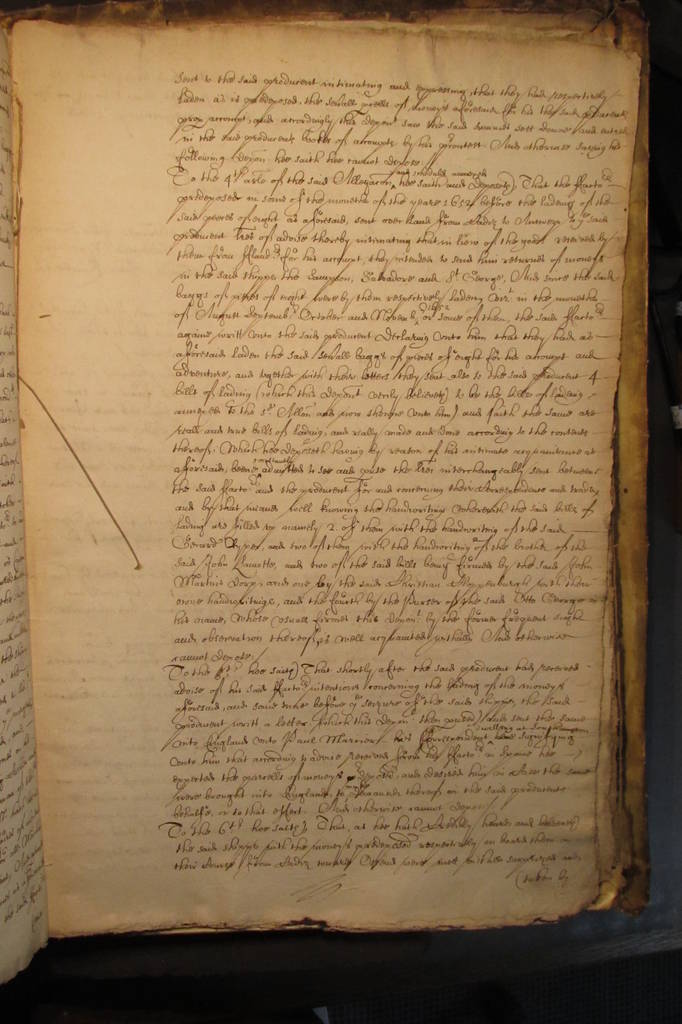 sent to the said producent intimating and expressing, that they had respectively
laden as is predeposed, the severall peeces of moneys aforesaid for his the said producents
proper accompt, and accordingly this deponent saw the said parcels sett downe and entred
in the said producents bookes of accompts by his
following deposition hee saith hee cannot depose./
To the 4th article of the said Allegation and schedules annexed hee saith and deposeth, That the factors
predeposed in some of the moneths of the yeare 1652 before the ladeing of the
said peeces of eight as aforesaid, sent over land from Cadiz to Antwerp to the said
producent letters of advise thereby intimating that in lieu of the goods received by
them from fland for his account, they intended to send him returnes of moneys
in the said shipps the Sampson, Salvadore and St George, And since the said
baggs of peeces of eight were by them respectively laden in the moneths
of August September October and November 1652 or some of them, the said factors
againe writt unto the said producent declaring unto him that they had as
aforesaid laden the said severall baggs of peeces of eight for his accompt and
adventure, and together with their letters they sent also to the said producent 4
bills of lading (which this deponent verily beleeveth to be the bills of ladeing
annexed to the said Allegation and now shewne unto him) and saith the same are
reall and true bills of lading, and really made and done according to the contents
thereof: Which hee deposeth having by reason of his intimate acquaintance as
aforesaid, beene continually admitted to see and peruse the letters interchangeably sent betweene
the said factors and the producent for and concerning their correspondence and trading
and by that meanes well knowing the handwriting wherewith the said bills of
lading are filled up namely 2 of them with the handwriting of the said
Gerard and two of them with the handwriting of the brother of the
said John and two of the said bills being firmed by the said John
Martins Dorp, and one by the said Christian with their
owne handwritings, and the fourth by the Purser of the said Otto George in
his name, Whose usuall firmes this deponent by the former frequent sight
and observation thereof is well acquainted withall. And otherwise
cannot depose./
To the 5th hee saith That shortly after the said producent had received
advise of his said factors intentions concerning the lading of the moneys
aforesaid, and some time before the seizure of the said shipps, the said
producent writt a letter (which this deponent then perused) and sent the same
unto England unto Paul Marrion his Correspondent signifying
unto him that according to advise received from his factors in Spaine hee
expected the parcells of moneys deposed, and desired him in case the same
were brought into England, to demannd thereof on the said producents
behalfe, or to that effect. And otherwise cannot depose./
To the 6th hee saith That, as hee hath credibly heard and beleeveth
the said shipps with the moneys predeposed respectively on board them in
their course from Cadiz toward Ostend were mett withall surprized and
taken by